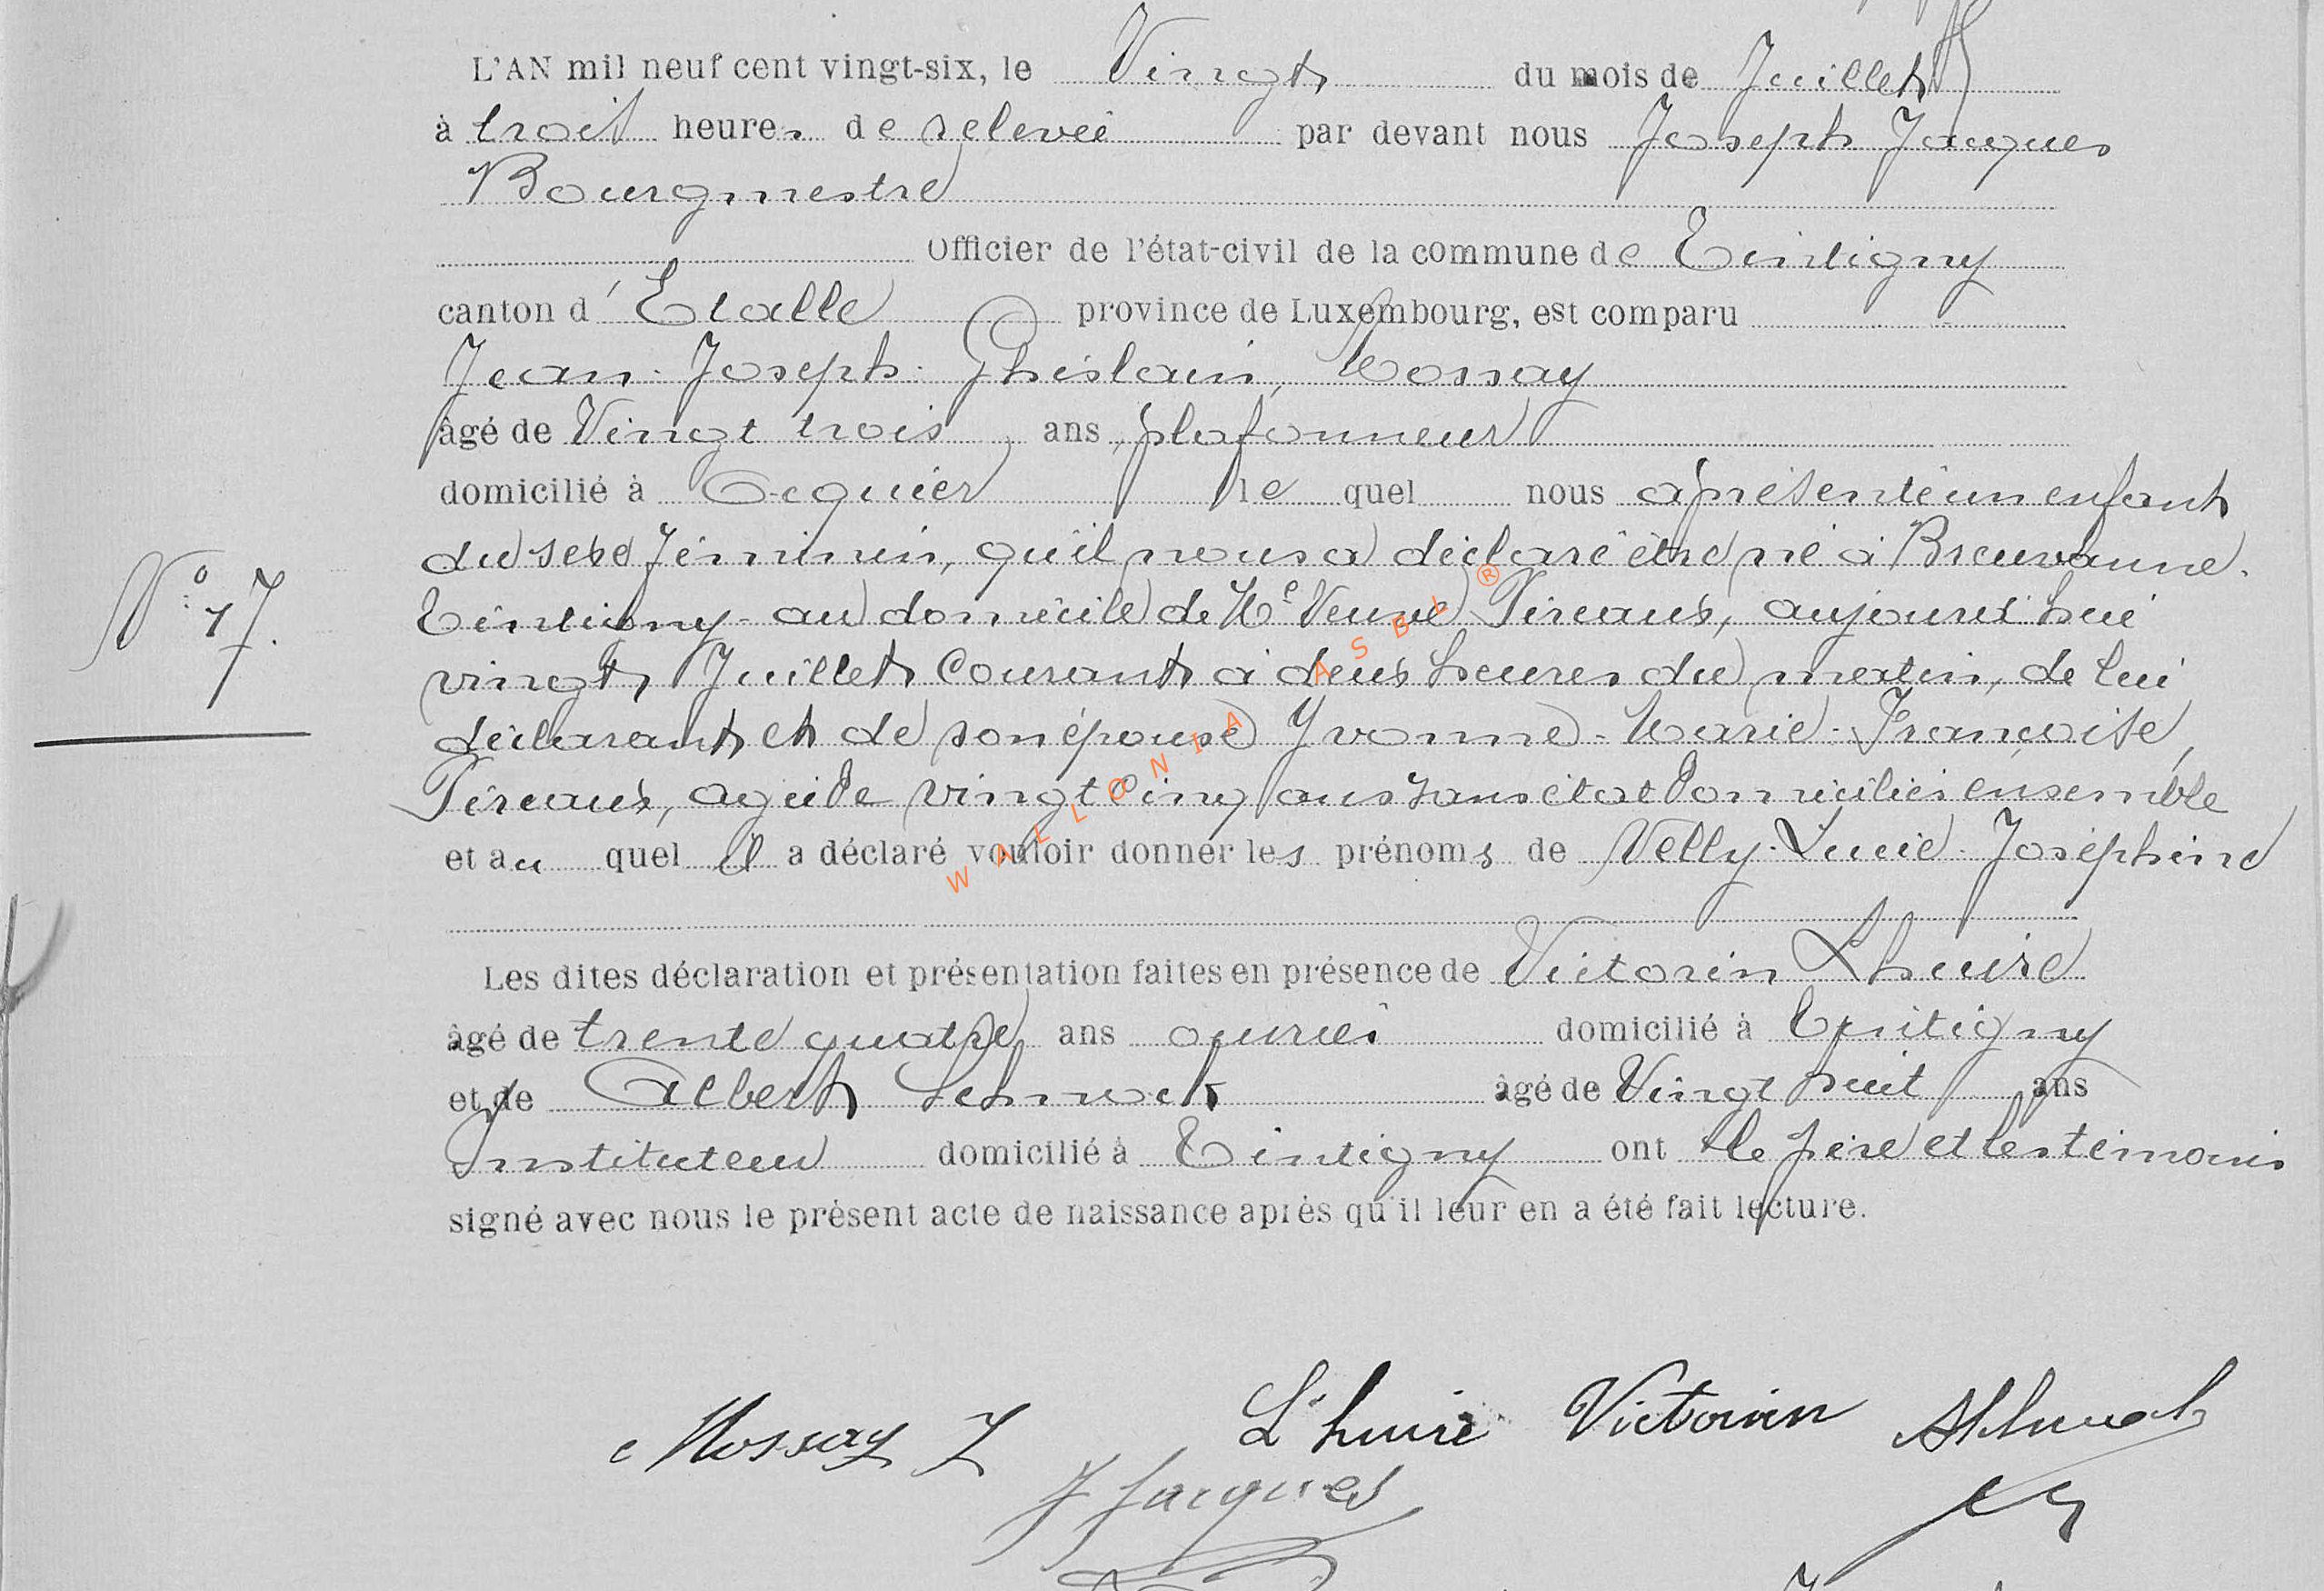 L'AN mil neuf cent vingt-six, le Vingt du mois de Juillet
à trois heures de relevée par devant nous Joseph Jacques
Bourgmestre
Officier de l'état-civil de la commune de Tintigny
canton d'Etalle province de Luxembourg, est comparu
Jean-Joseph-Ghislain, Mossay
âgé de Vingt trois ans, plafonneur
domicilié à Ocquier lequel nous a présenté un enfant
du sexe féminin, qu'il nous a déclaré être né à Breuvanne.
Tintigny - au domicile de Me Veuve Pireaux, aujourd'hui
vingt Juillet Courant à deux heures du matin, de lui
déclarant et de son épouse Yvonne-Marie-Françoise,
Pireaux, agée de vingt cinq ans sans état domiciliés ensemble
et auquel il a déclaré vouloir donner les prénoms de Nelly-Lucie-Joséphine
No 17.
Les dites déclaration et présentation faites en présence de Victorin Lhuire
âgé de trente quatre ans ouvrier domicilié à Tintigny
et de Albert Schmock âgé de Vingt huit ans
Instituteur domicilié à Tintigny ont le père et les témoins
signé avec nous le présent acte de naissance après qu'il leur en a été fait lecture.
Mossay J L'huire Victorin
J Jacques
WALLONIA ASBL ®